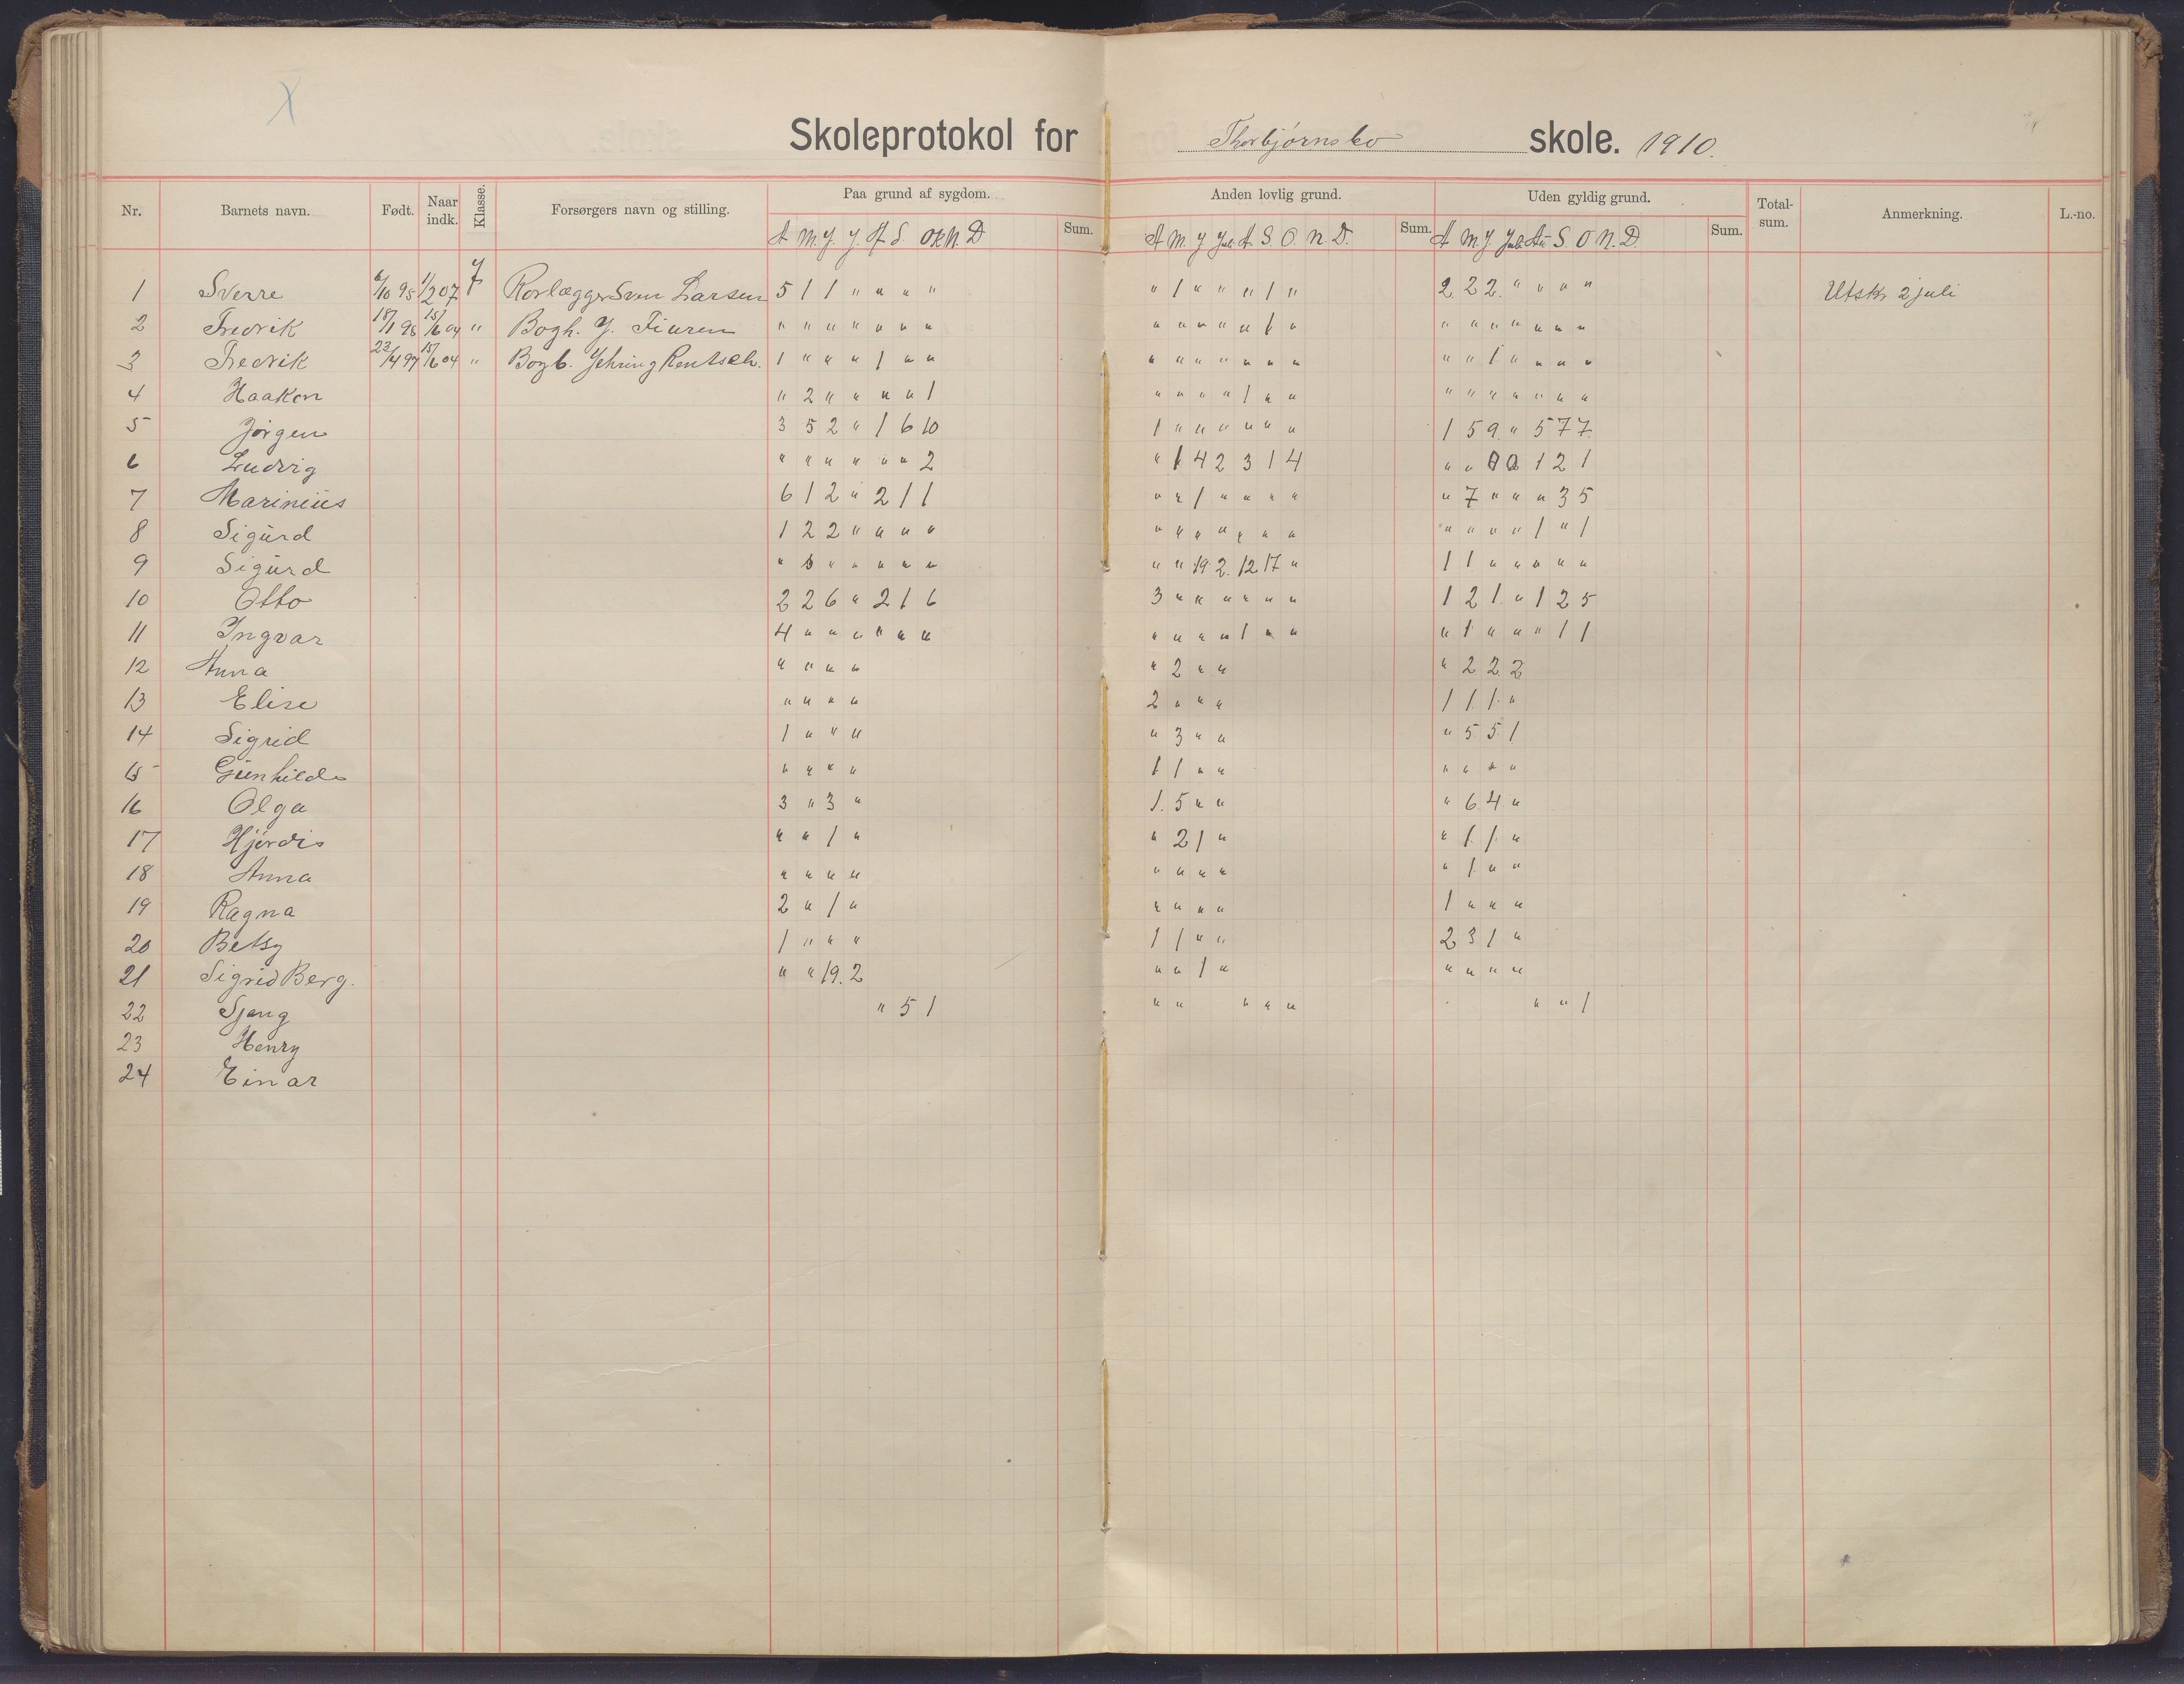 Skoleprotokol for Thorbjørnsbo skole. 1910.
Nr. Barnets navn. Født. Naar indk. Klasse. Forsørgers navn og stilling. Paa grund af sygdom. Sum. Anden lovlig grund. Sum. Uden gyldig grund. Sum. Total-sum. Anmerkning. L.-no.
A M. J. J. A S. Ok N. D A M J Jul. A. S. O. N D. A M. J Juli Au S O N. D
1 Sverre 6/10 95 1/2 07 7 Rorlægger Sven Larsen 5 1 1 " " " " " 1 " " " 1 " 2 2 2 " " " " Utskr 2 juli
2 Fredrik 18/1 96 15/6 04 " Bogh. J. " " " " " " " " " " " " 1 " " " " " " " "
3 Fredrik 23/4 97 15/6 04 " Bogb. Jehring Rentsch. 1 " " " 1 " " " " " " " " " " " 1 " " " "
4 Haakon " 2 " " " " 1 " " " " 1 " " " " " " " " "
5 Jørgen 3 5 2 " 1 6 10 1 " " " " " " 1 5 9 " 5 7 7
6 Ludvig " " " " " " 2 " 1 4 2 3 1 4 " " 1 2 1
7 Marinius 6 1 2 " 2 1 1 " " 1 " " " " " 7 " " " 3 5
8 Sigurd 1 2 2 " " " " " " " " " " " " " " " 1 " 1
9 Sigurd " " " " " " " " 19 2. 12 17 " 1 1 " " " " "
10 Otto 2 2 6 " 2 1 6 3 " " " " " " 1 2 1 " 1 2 5
11 Ingvar 4 " " " " " " " " " " 1 " " " 1 " " " 1 1
12 Anna " " " " " 2 " " " 2 2 2
13 Elise " " " " 2 " " " 1 1 1 "
14 Sigrid 1 " " " " 3 " " " 5 5 1
15 Gunhild " " " " 1 1 " " " " " "
16 Olga 3 " 3 " 1. 5 " " " 6 4 "
17 Hjørdis " " 1 " " 2 1 " " 1 1 "
18 Anna " " " " " " " " " 1 " "
19 Ragna 2 " 1 " " " " " 1 " " "
20 Betsy 1 " " " 1 1 " " 2 3 1 "
21 Sigrid Berg. " " 19. 2 " " 1 " " " " "
22 " 5 1 " " " " " " " 1
23 Henry
24 Einar